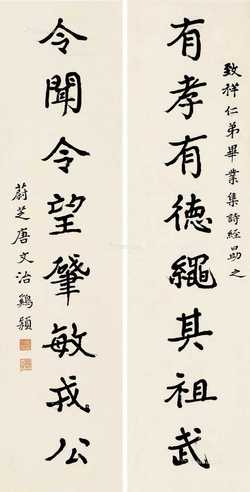 致祥仁弟畢業集詩經勗之
有孝有德繩其祖武
令聞令望肇敏戎公
蔚芝唐文治鷄穎